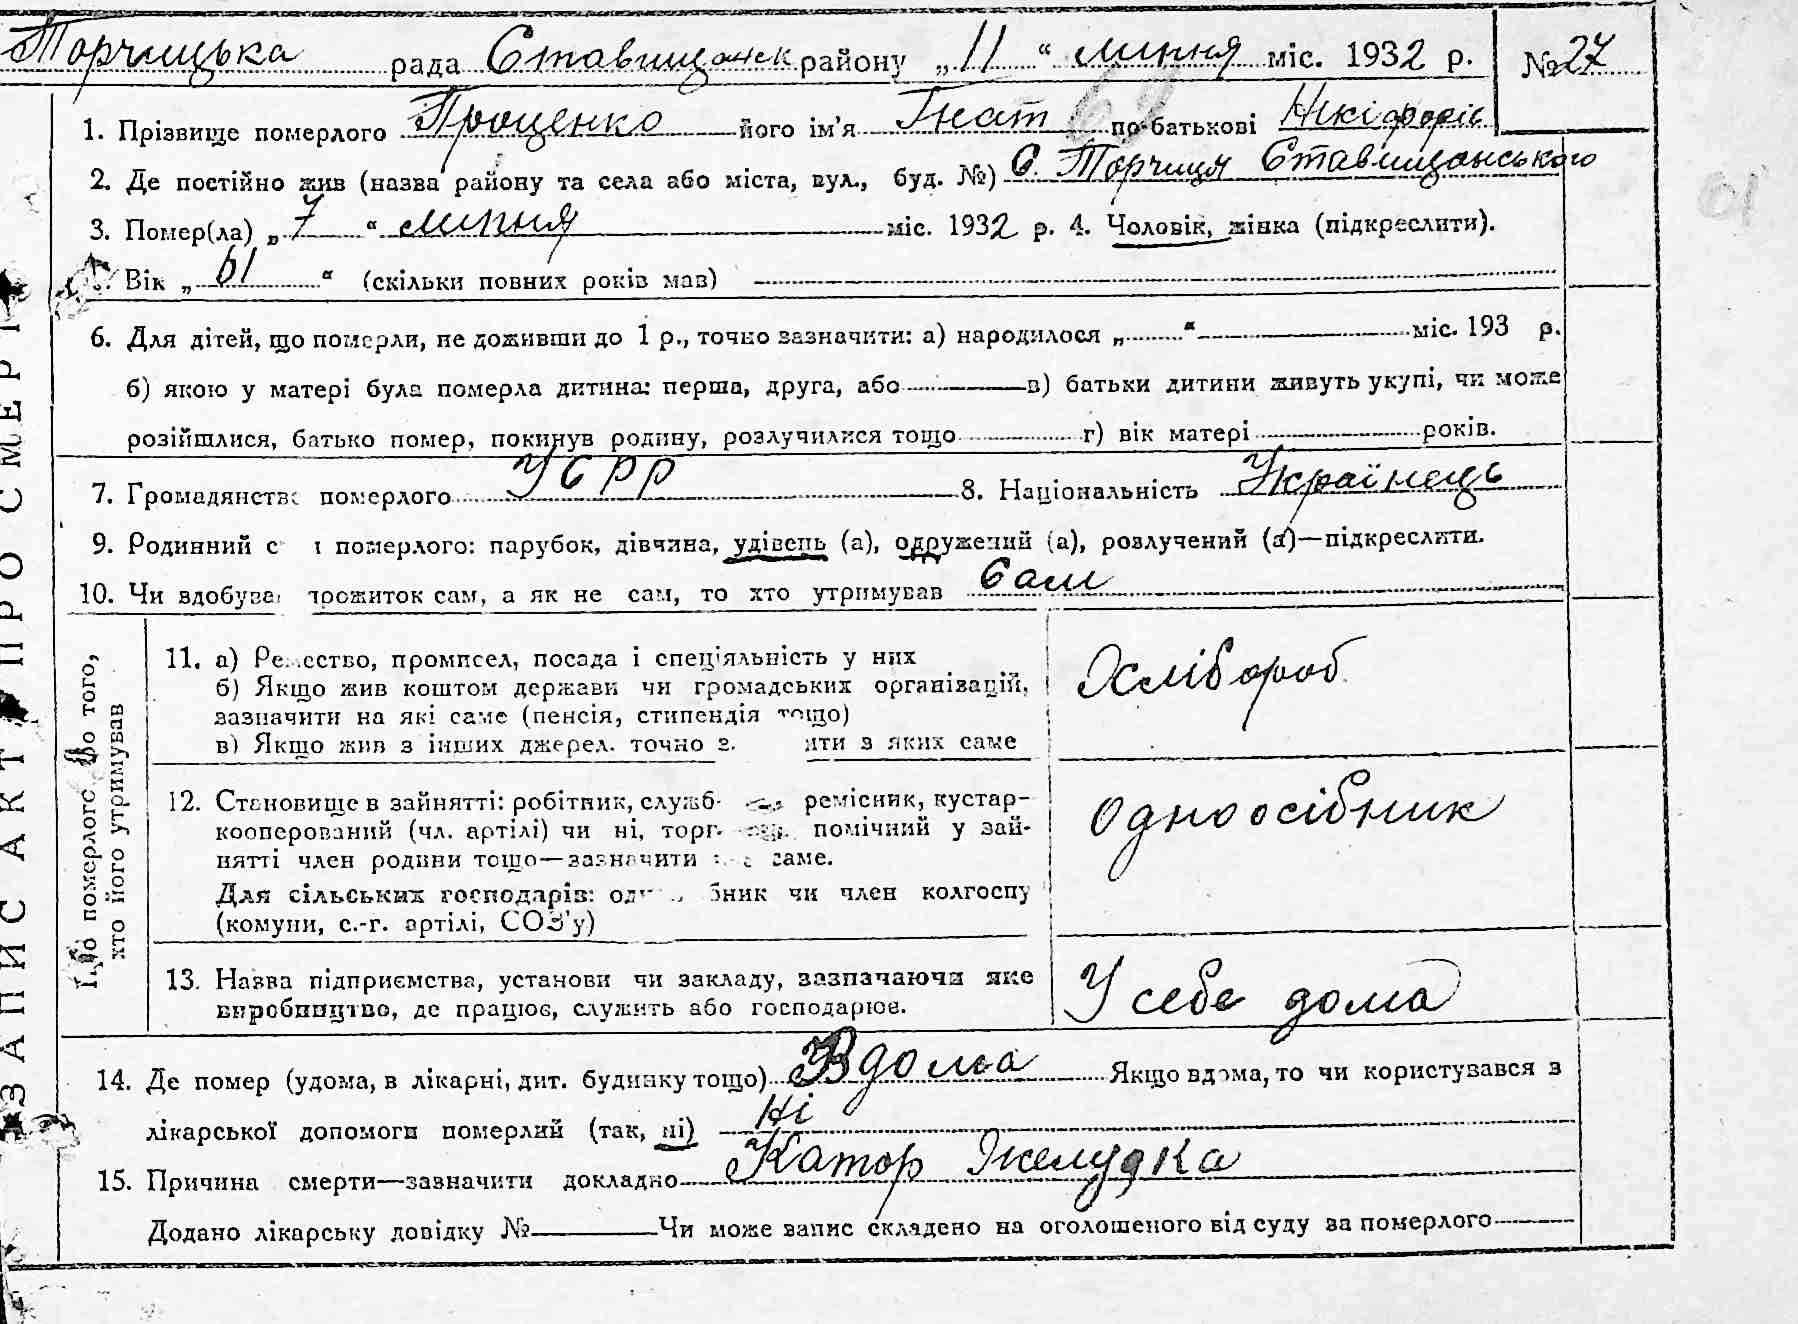 Торчицька рада Ставищанськ району „11“ липня міс. 1932 р. № 27
1. Прізвище померлого Проценко його ім’я Гнат по-батькові Нікіфорів
2. Де постійно жив (назва району та села або міста, вул., буд. №) С. Торчиця Ставищанського
3. Помер(ла) „7“ липня міс. 1932 р. 4. Чоловік, жінка (підкреслити).
Вік „61“ (скільки повних років мав)
6. Для дітей, що померли, не доживши до 1 р., точно зазначити: а) народилося „ “ міс. 193 р.
б) якою у матері була померла дитина: перша, друга, або в) батьки дитини живуть укупі, чи може
розійшлися, батько помер, покинув родину, розлучилися тощо г) вік матері років.
7. Громадянство померлого УСРР 8. Національність Українець
9. Родинний с померлого: парубок, дівчина, удівець (а), одружений (а), розлучений (а)—підкреслити.
10. Чи вдобував прожиток сам, а як не сам, то хто утримував Сам
11. а) Ремество, промисел, посада і спеціяльність у них
б) Якщо жив коштом держави чи громадських організацій,
зазначити на які саме (пенсія, стипендія тощо)
в) Якщо жив з інших джерел, точно з ити з яких саме
Хлібороб
12. Становище в зайнятті: робітник, служб- ремісник, кустар-
кооперований (чл. артілі) чи ні, торг- помічний у зай-
нятті член родини тощо—зазначити саме.
Для сільських господарів: од бник чи член колгоспу
(комуни, с.-г. артілі, СОЗ’у)
Одноосібник
13. Назва підприємства, установи чи закладу, зазначаючи яке
виробництво, де працює, служить або господарює.
У себе дома
14. Де помер (удома, в лікарні, дит. будинку тощо) Вдома Якщо вдома, то чи користувався з
лікарської допомоги померлий (так, ні) Ні
15. Причина смерти—зазначити докладно Катор Желудка
Додано лікарську довідку № Чи може запис складено на оголошеного від суду за померлого
ЗАПИС АКТУ ПРО СМЕРТЬ
Про померлого, або того,
хто його утримував
61